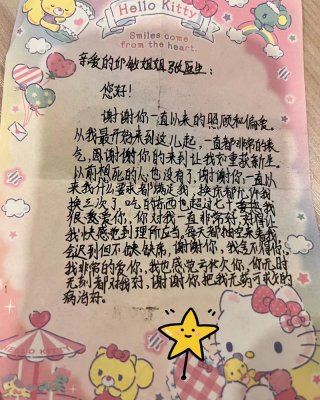 Hello Kitty
Smiles come
from the heart.
亲爱的邱敏姐姐张医生:
您好!
谢谢你一直以来的照顾和偏爱。
从我最开始来到这儿起,一直都非常的
气,因谢谢你的来到让我如重获新生
以前想死的心也没有了,谢谢你,一直以
来我什么要求都满足我,换床都允许我
换三次了,吃的东西也超过七十
很感爱你,你对我一直非常好,好得让
我快感觉到理所应当,每天都抽空来看我
会迟到但不会缺席,谢谢你,我舍不得你,
我非常的爱你,我也感觉亏欠你,你无时
无刻都对我好,谢谢你把我无药可救的
病治好。
HELLO KITTY